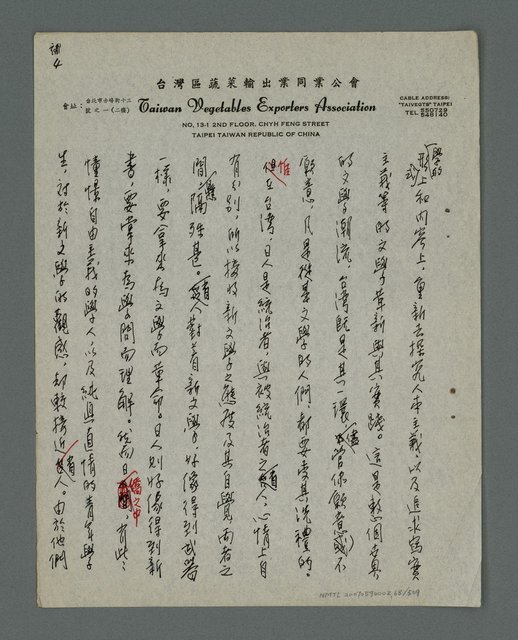 補
4
台灣區蔬菜輸出業同業公會
會址：台北市赤峰街十三號之一（二樓）
Taiwan Vegetables Exporters Association
CABLE ADDRESS:
"TAIVEGTS" TAIPEI
TEL 550729
546140
NO. 13-1 2ND FLOOR, CHYH FENG STREET
TAIPEI TAIWAN REPUBLIC OF CHINA
學的形式上和內容上，重新去探究人本主義，以及追求寫實
主義等的文學革新與其實踐。這是整個東真
的文學潮流，台灣既是其一環，儘管你願意或不
願意，凡是從事文學的人們，都要受其洗禮的。
惟在台灣，日人是統治者，與被統治者之省人，心情上自
有分別，所以接收新文學之態度及其自覺兩者之
間懸隔殊甚。省人對有新文學，好像得到武器
一樣，要拿來為文學而革命。日人則好像得到新
書，要拿來為學問而理解。然而日籍之中，有些
憧憬自由主義的學人，以及純真直情的青年學
生，對於新文學的觀感，却較接近省人。由於他們
NMTL 20070590002